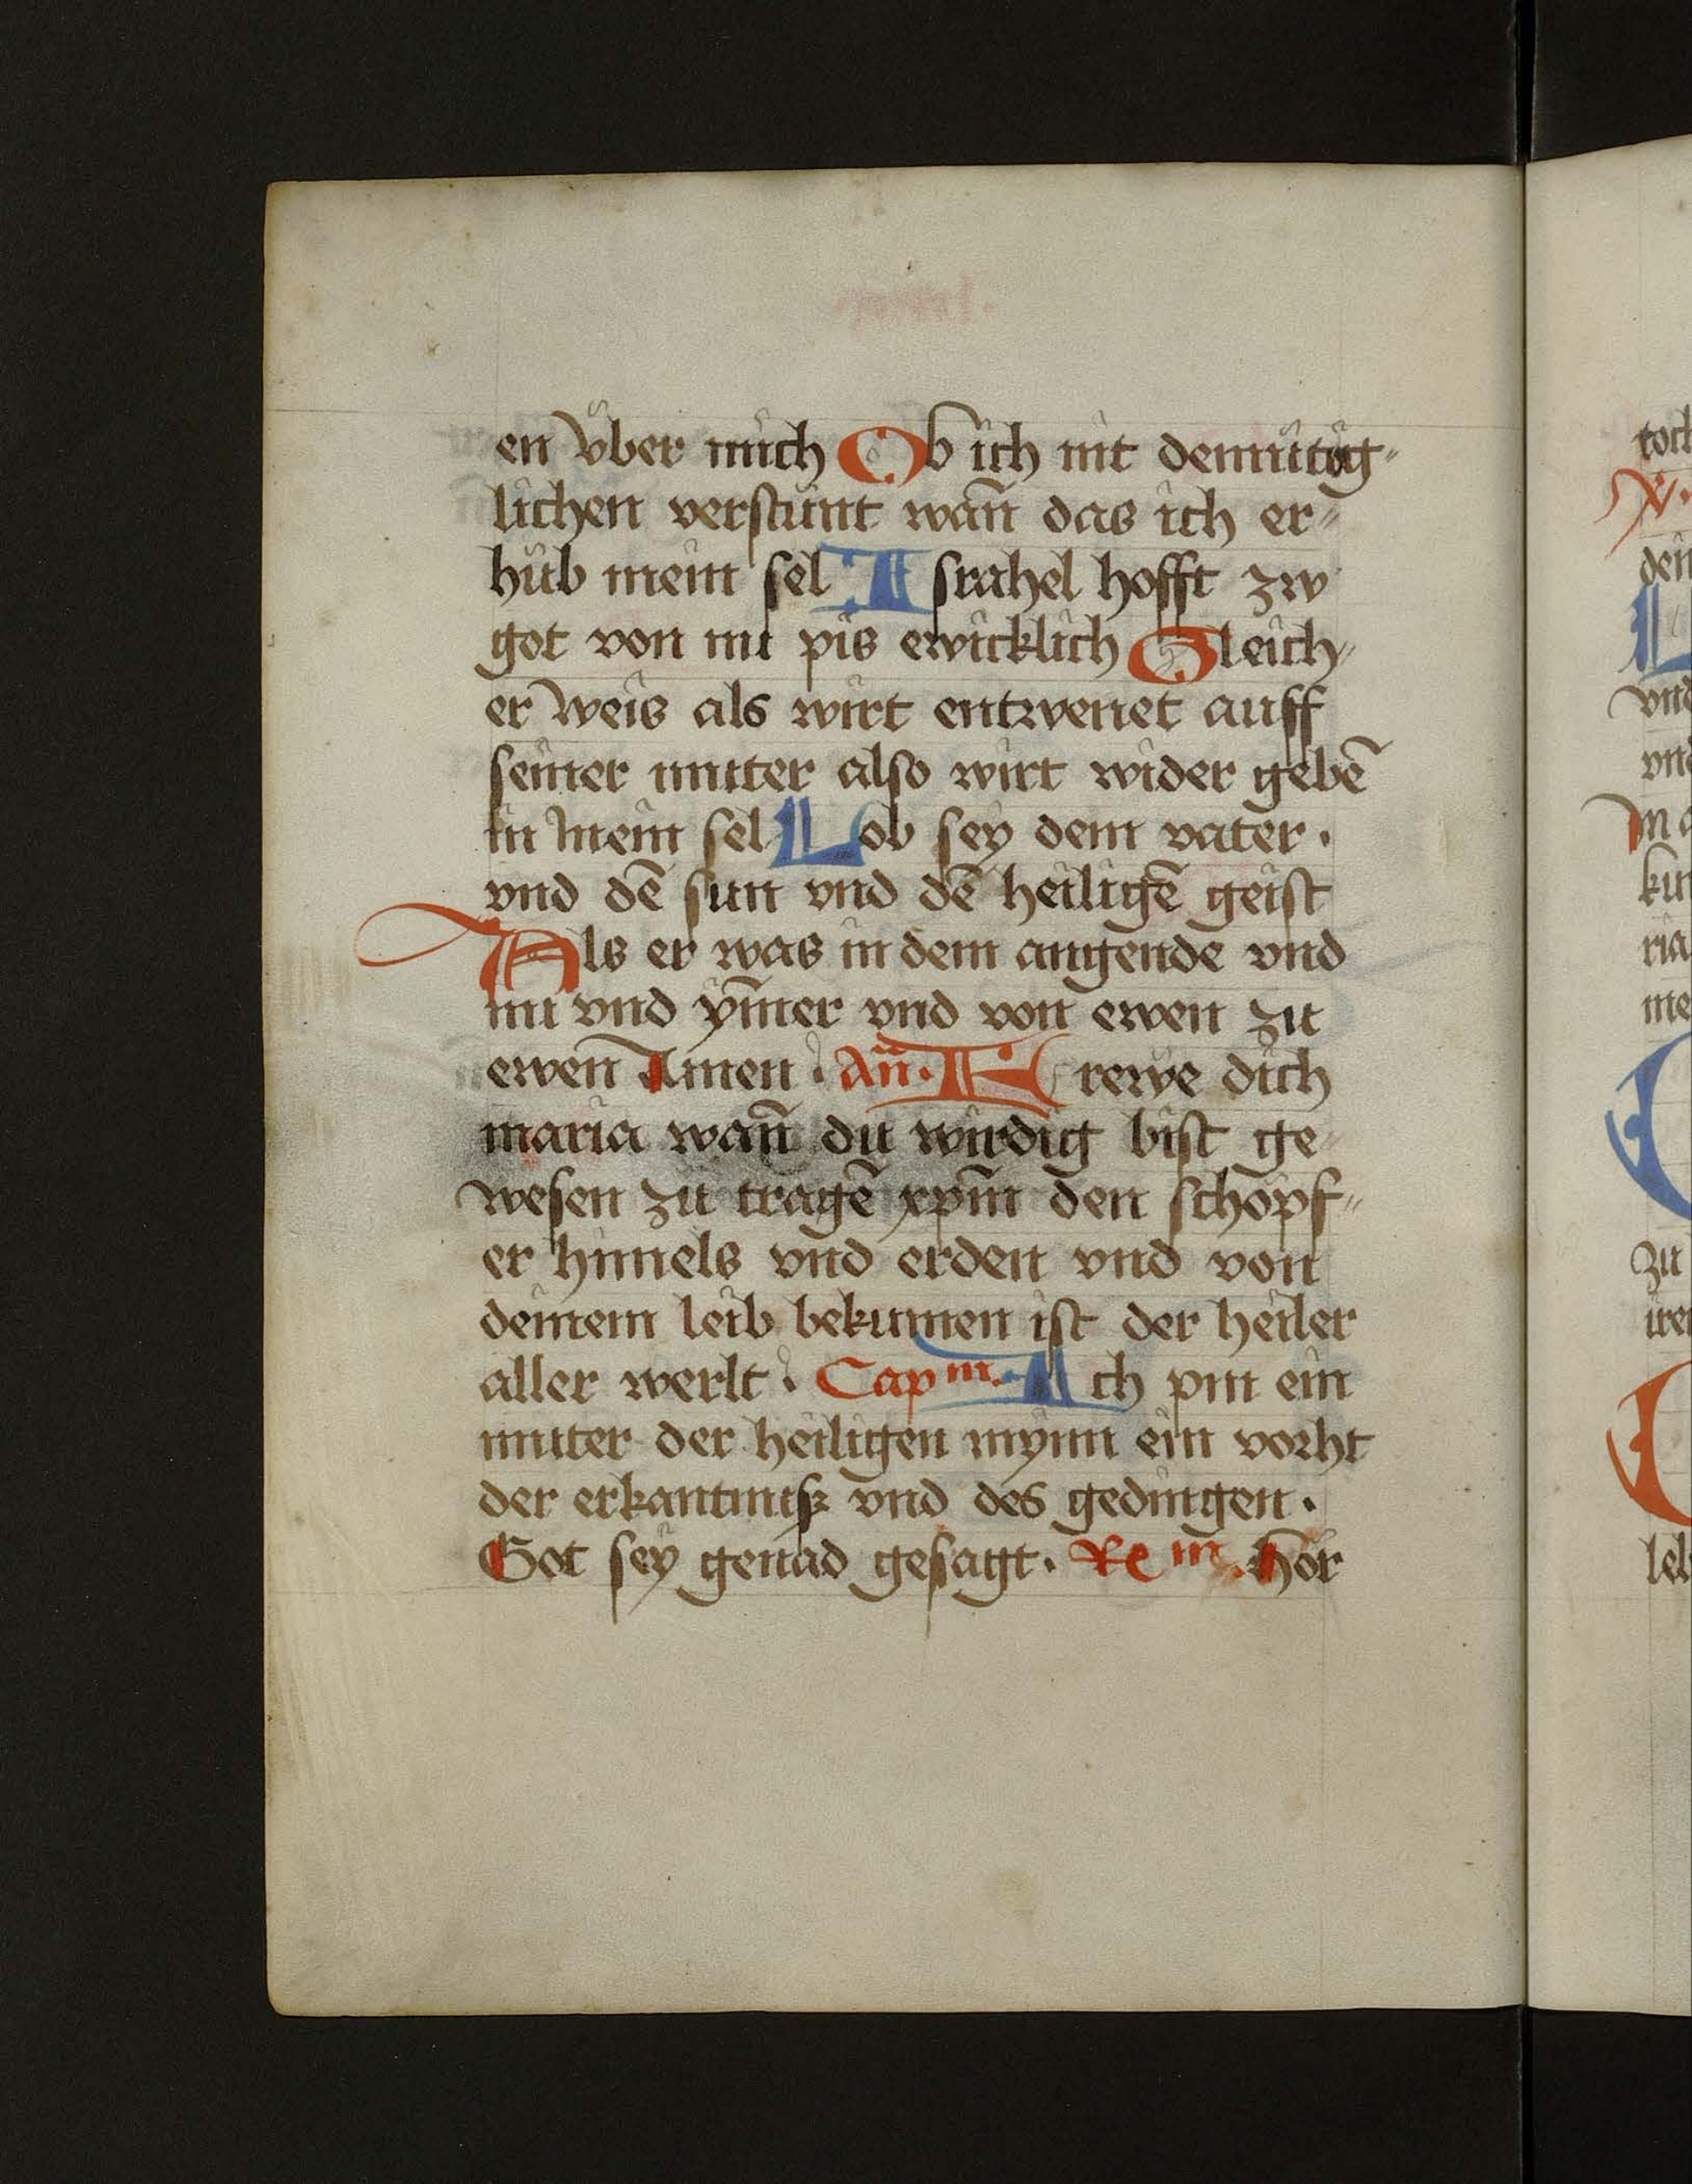 en vber mich Ob ich nit demutig-
lichen verstunt wan̄ das ich er-
hub mein sel Israhel hofft zw
got von nu pis ewicklich Gleich-
er weis als wirt entwenet auff
seiner muter also wirt wider gebē
in mein sel Lob sey dem vater.
vnd dē sun vnd dē heiligē geist
Als er was in dem angende vnd
nu vnd ym̄er vnd von ewen zu
ewen Amen. An̄. Frewe dich
maria wan̄ du wirdig bist ge-
wesen zu tragē xpm̄ den schopf-
er himels vnd erden vnd von
deinem leib bekumen ist der heiler
aller werlt. Capm. Ich pin ein
muter der heiligen mynn ein vorht
der erkantnisz vnd des gedingen.
Got sey genad gesagt. Rem. Hor